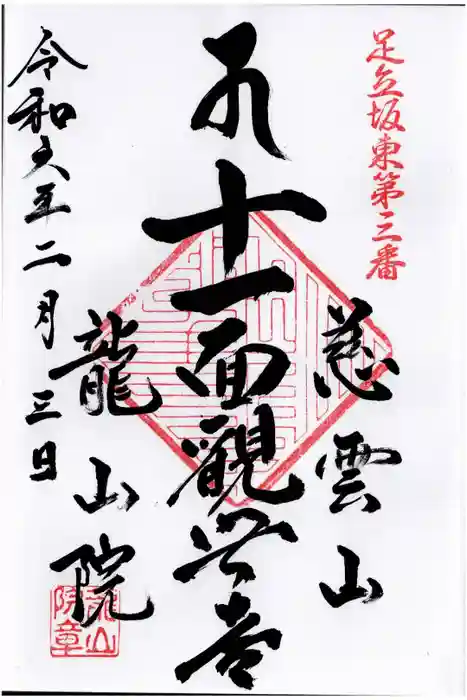 足立坂東第三番
慈雲山
十一面觀世音
龍山院
令和六年二月三日
院章